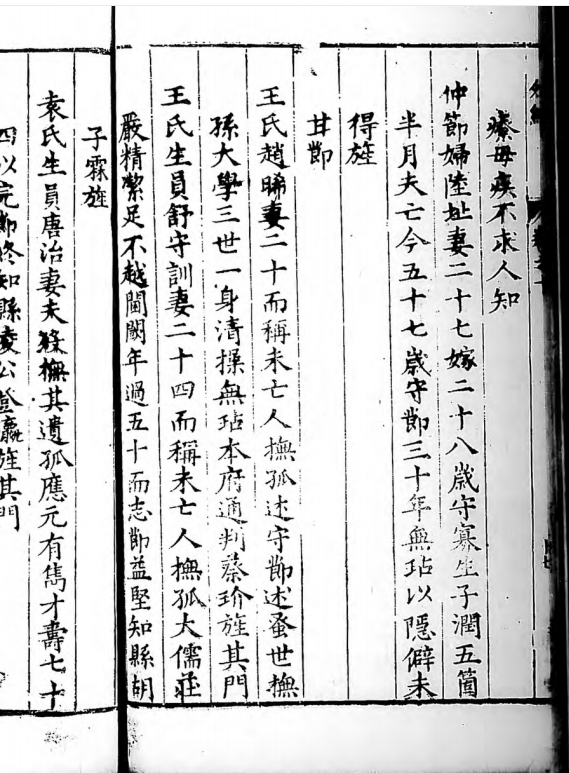 療毋疾不求人知
仲節婦陸址妻二十七嫁二十八歲守寡生子潤五箇
半月夫亡今五十七歲守節三十年無玷以隱僻未
得旌
甘節
王氏趙晞妻二十而稱未亡人撫孤述守節述蚤世撫
孫大學三世一身清操無玷本府通判蔡玠旌其門
王氏生員舒守訓妻二十四而稱未亡人撫孤大儒莊
嚴精潔足不越閫閾年過五十而志節益堅知縣胡
子霖旌
袁氏生員唐治妻夫歿撫其遺孤應元有雋才壽七十
四以完節終知縣凌公登瀛旌其門